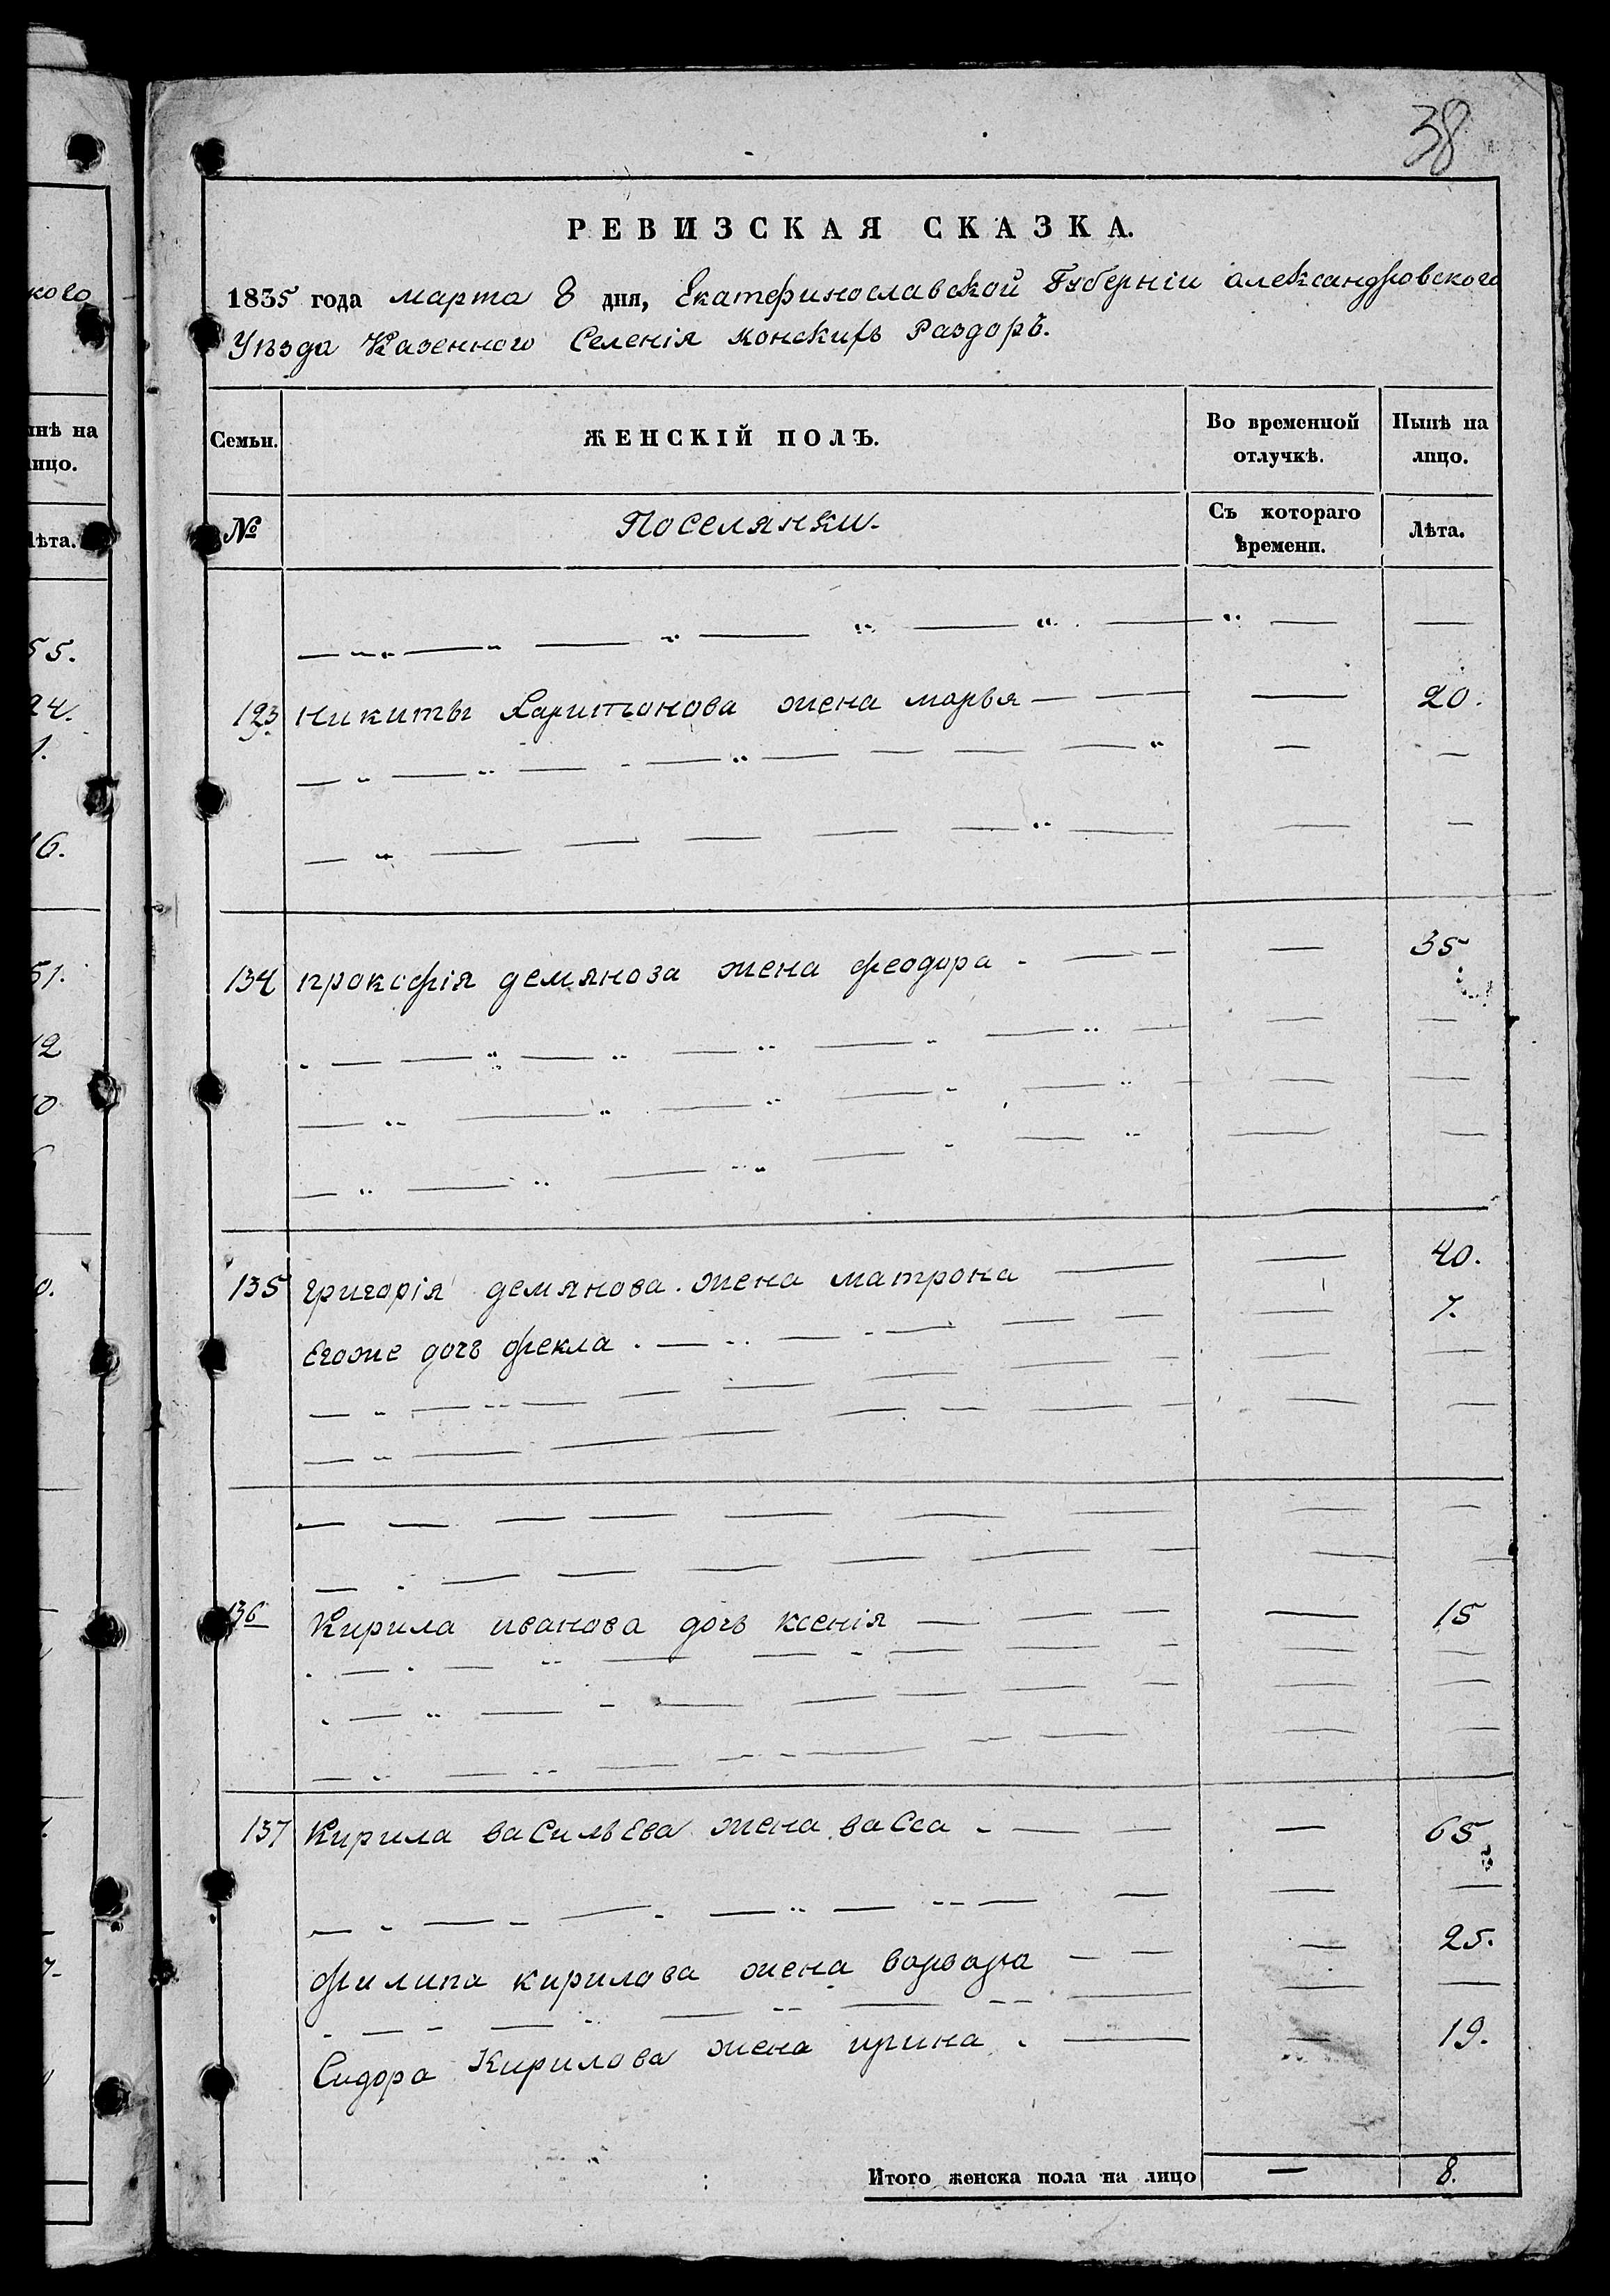 кого
ынѣ на
лицо.
Лѣта.
55.
24.
1.
16.
51.
12
10
0.
38
РЕВИЗСКАЯ СКАЗКА.
1835 года марта 8 дня, Екатеринославской Губерніи александровского
Уѣзда Казенного Селенія Конскихъ Раздоръ.
Семьи. ЖЕНСКІЙ ПОЛЪ. Во временной отлучкѣ. Нынѣ на лицо.
№ Поселянки. Съ котораго времени. Лѣта.
123 Никиты Харитонова жена марья — 20.
134 прокофія демянова жена феодора — 35
135 григорія демянова жена матрона — 40.
Егоже дочь фекла — 7.
136 Кирила иванова дочь ксенія — 15
137 Кирила васильева жена васса — 65
филипа кирилова жена варвара — 25.
Сидора Кирилова жена ирина — 19.
Итого женска пола на лицо — 8.